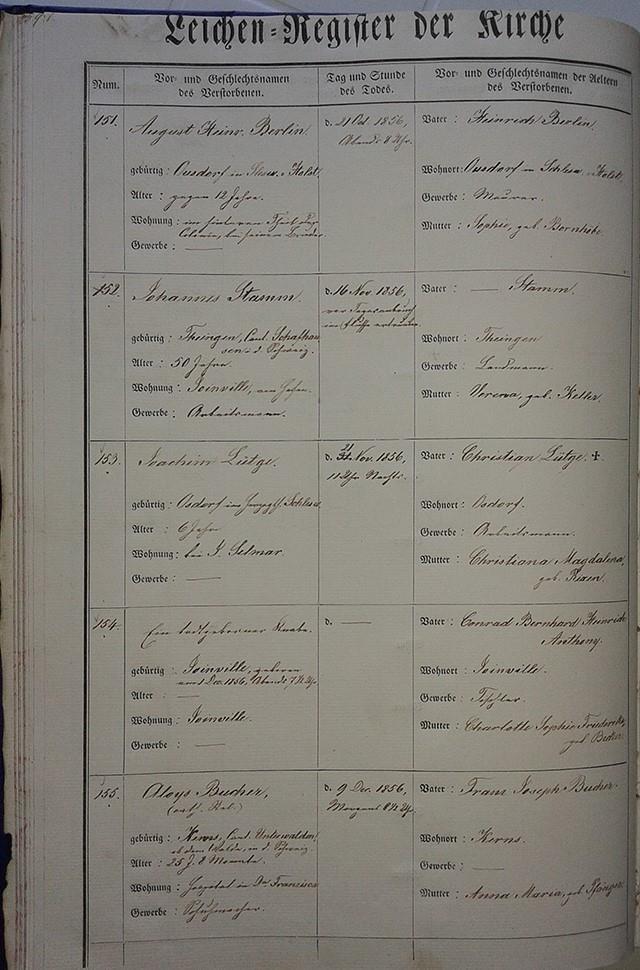 Leichen-Register der Kirche
Num.
Vor- und Geschlechtsnamen
des Verstorbenen.
Tag und Stunde
des Todes.
Vor- und Geschlechtsnamen der Aeltern
des Verstorbenen.
151.
August Heinr. Berlin
gebürtig: Ousdorf in Holst.
Alter: gegen 12 Jahre.
Wohnung: im hinteren Theil der
Colonie, bei seinem Bruder
Gewerbe: —
d. 21 Oct. 1856,
Abends 8 Uhr.
Vater: Heinrich Berlin.
Wohnort: Ousdorf in Holst.
Gewerbe: Maurer.
Mutter: Sophie, geb.
152.
Johannes Stamm.
gebürtig: Cant. Schafhau
sen i. d. Schweiz.
Alter: 50 Jahre.
Wohnung: Joinville, am Hafen.
Gewerbe: Arbeitsmann.
d. 16 Nov. 1856,
vor Tagesanbruch
im Fluße ertrunken
Vater: — Stamm.
Wohnort:
Gewerbe: Landmann.
Mutter: Verena, geb. Keller.
153.
Joachim Lütge.
gebürtig: Osdorf im
Alter: 6 Jahr
Wohnung: bei J. Selmar.
Gewerbe: —
d. Nov. 1856,
11 Uhr Nachts.
Vater: Christian Lütge. ✝
Wohnort: Osdorf.
Gewerbe: Arbeitsmann.
Mutter: Christiana Magdalena,
geb.
154.
Ein todtgeborner Knabe.
gebürtig: Joinville, geboren
Dec. 1856, Abends 7½ Uhr
Alter: —
Wohnung: Joinville.
Gewerbe: —
d. —
Vater: Conrad Bernhard Heinrich
Anthony.
Wohnort: Joinville.
Gewerbe: Tischler.
Mutter: Charlotte Sophie Friederike,
geb. Becker.
155.
Aloys Bucher,
gebürtig: Kerns, Cant. Unterwalden
ob dem Walde, in d. Schweiz.
Alter: 25 J. 8 Monate.
Wohnung: Hospital in Dª Francisca
Gewerbe: Schuhmacher.
d. 9 Dec. 1856,
Morgens Uhr.
Vater: Franz Joseph Bucher.
Wohnort: Kerns.
Gewerbe: —
Mutter: Anna Maria, geb.